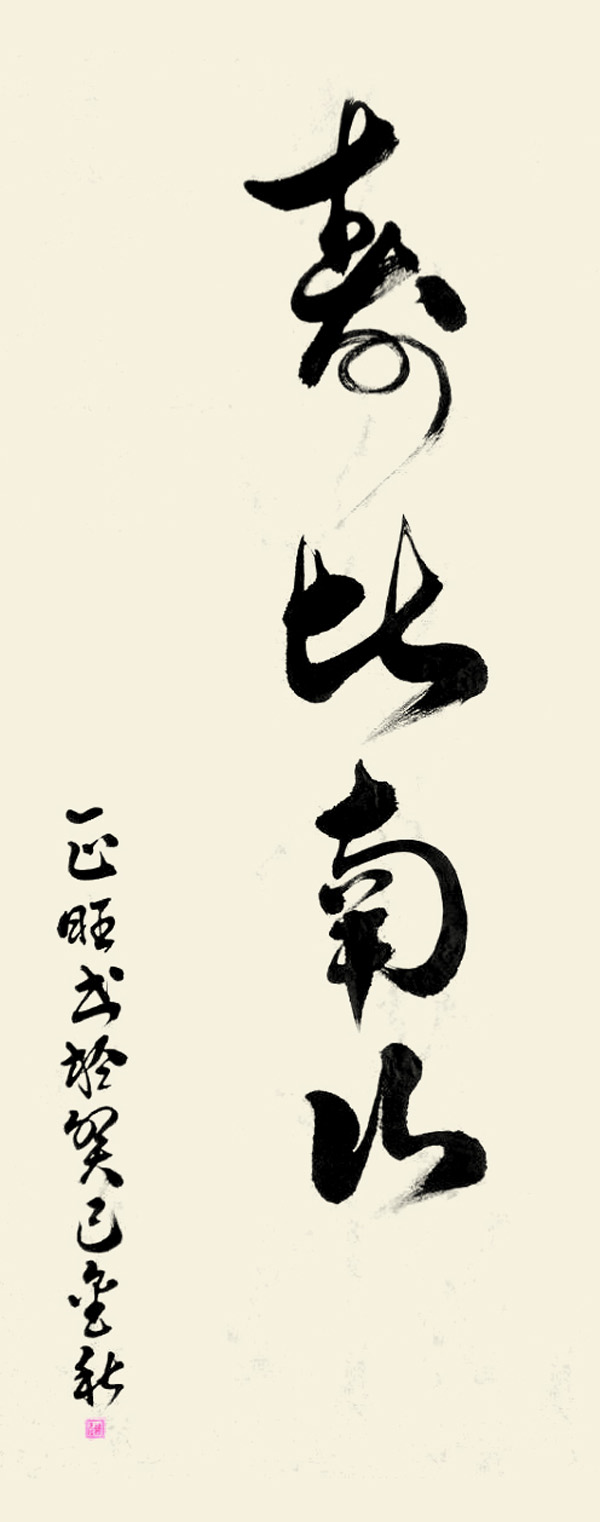 寿比南山
正旺书於癸巳金秋